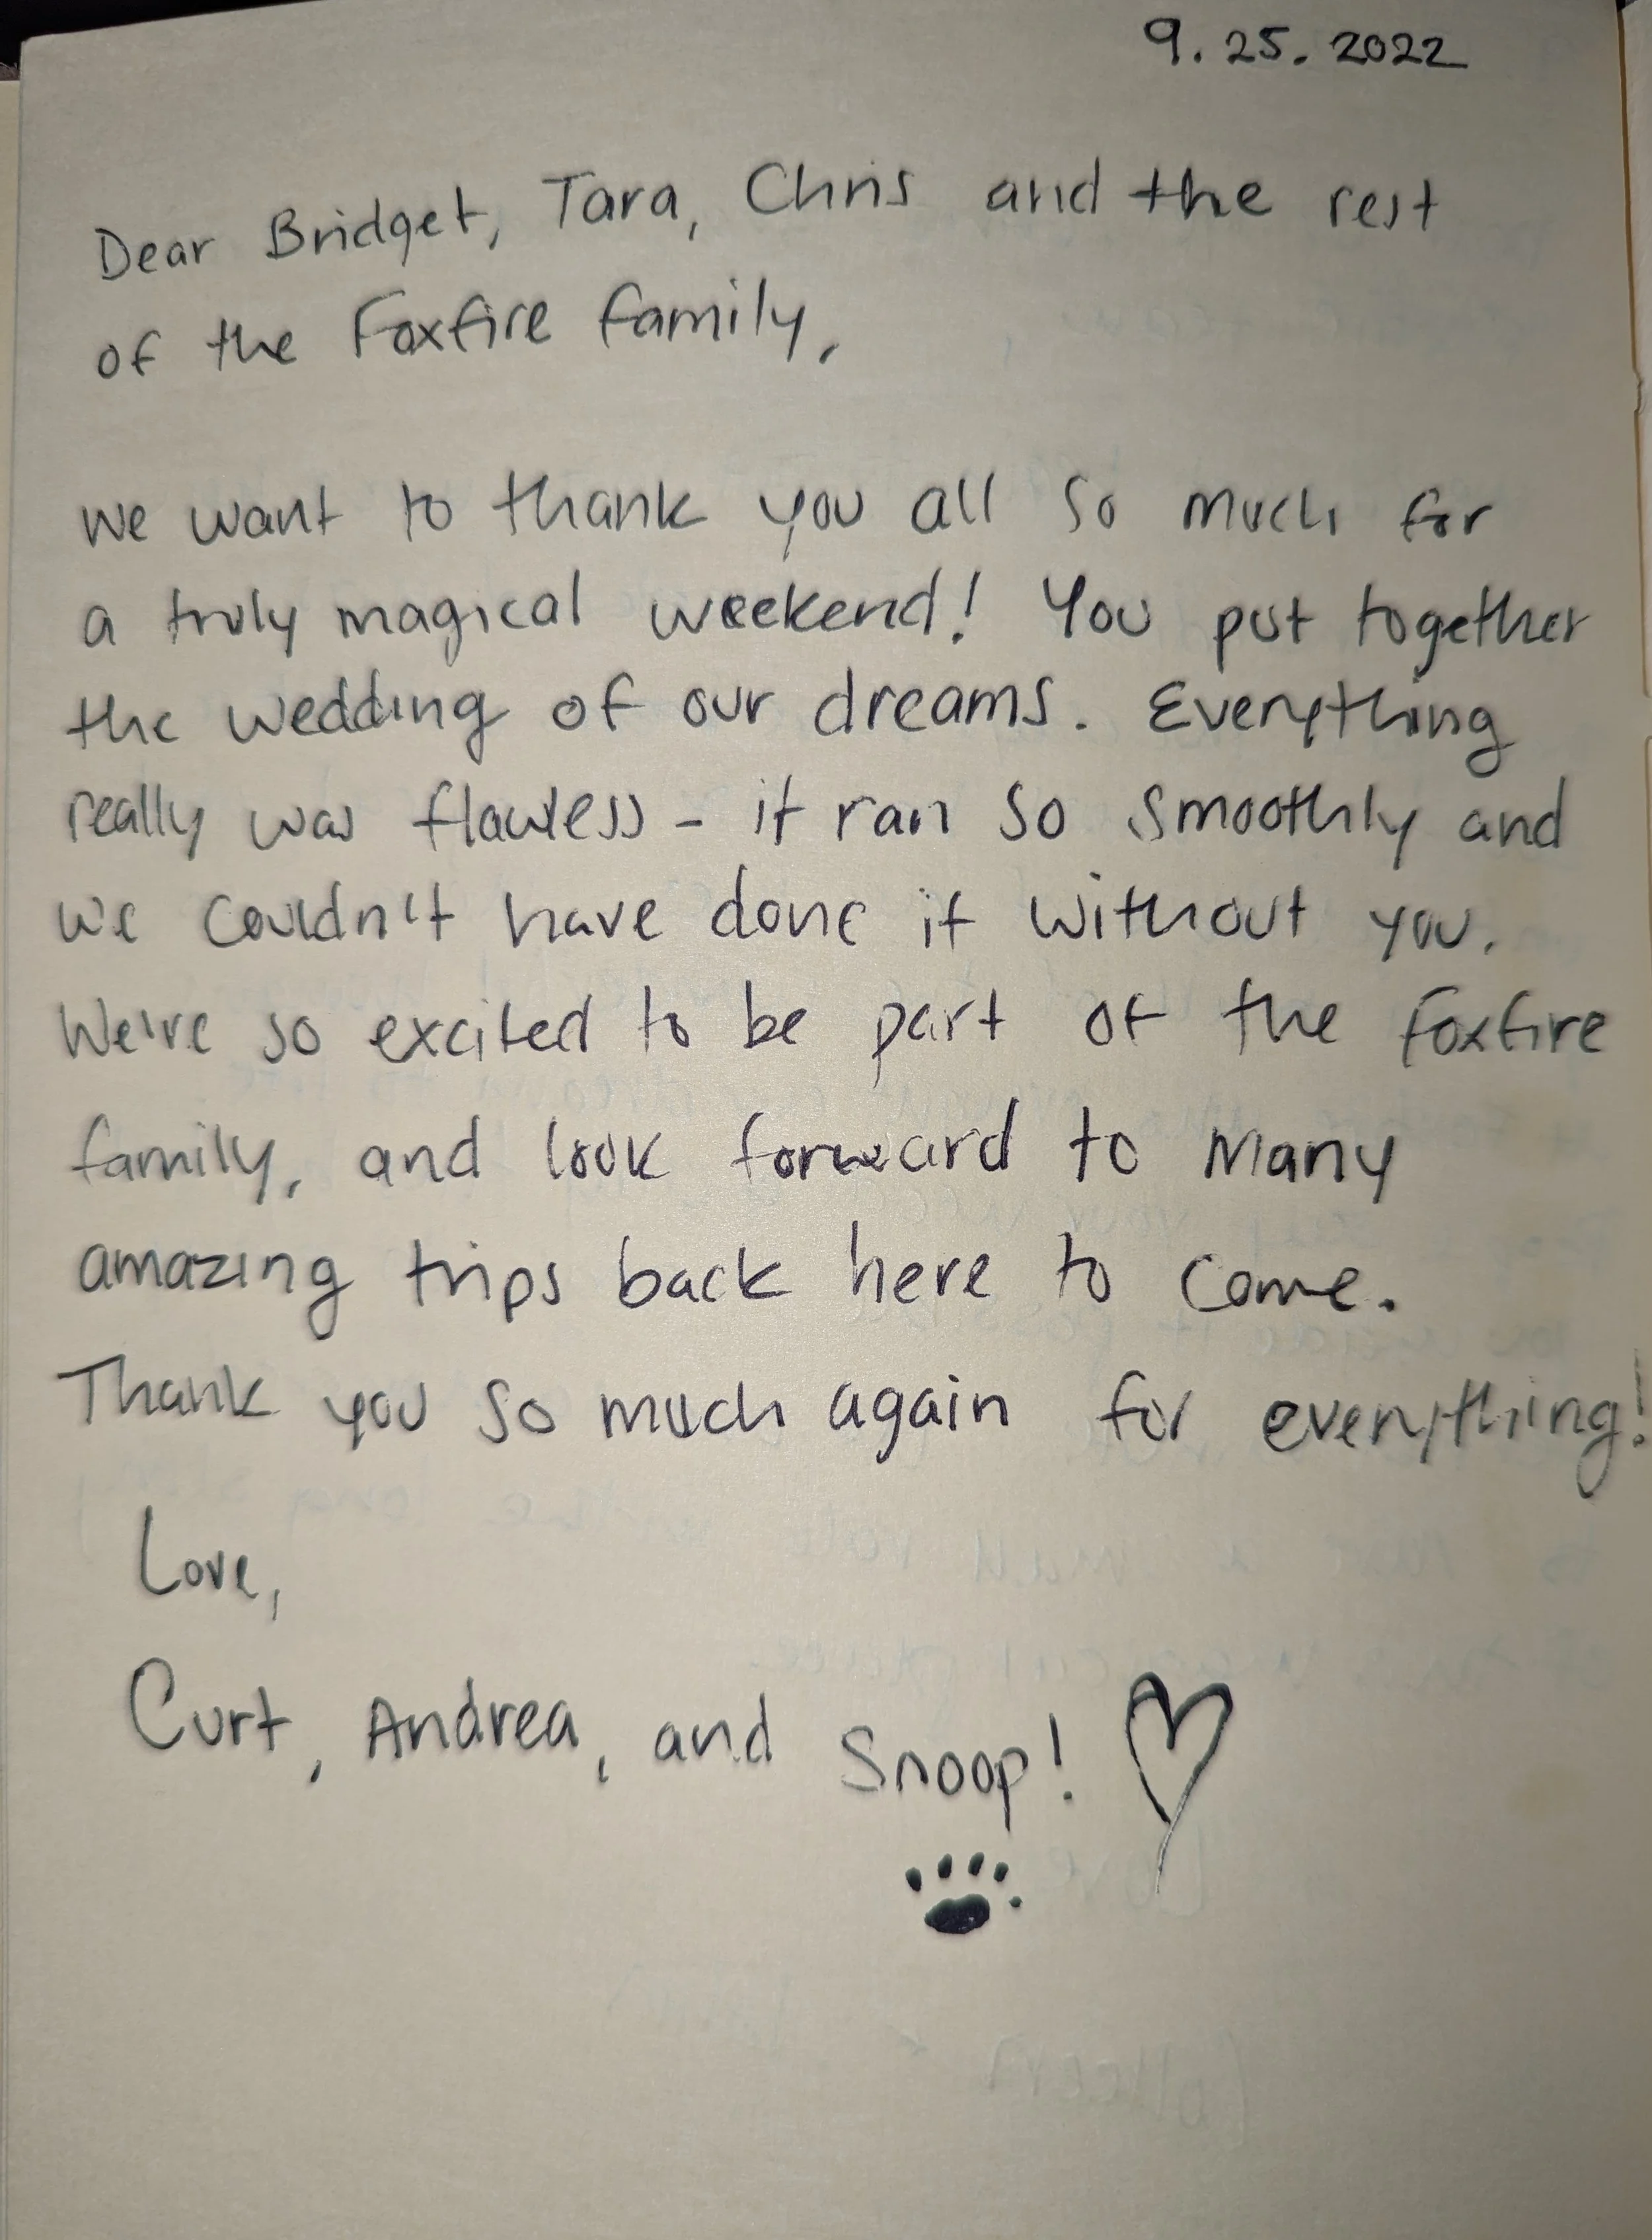 9.25.2022
Dear Bridget, Tara, Chris and the rest
of the Foxfire family,
We want to thank you all so much for
a truly magical weekend! You put together
the wedding of our dreams. Everything
really was flawless - it ran so smoothly and
we couldn't have done it without you.
We're so excited to be part of the Foxfire
family, and look forward to many
amazing trips back here to come.
Thank you so much again for everything!
Love,
Curt, Andrea, and Snoop!